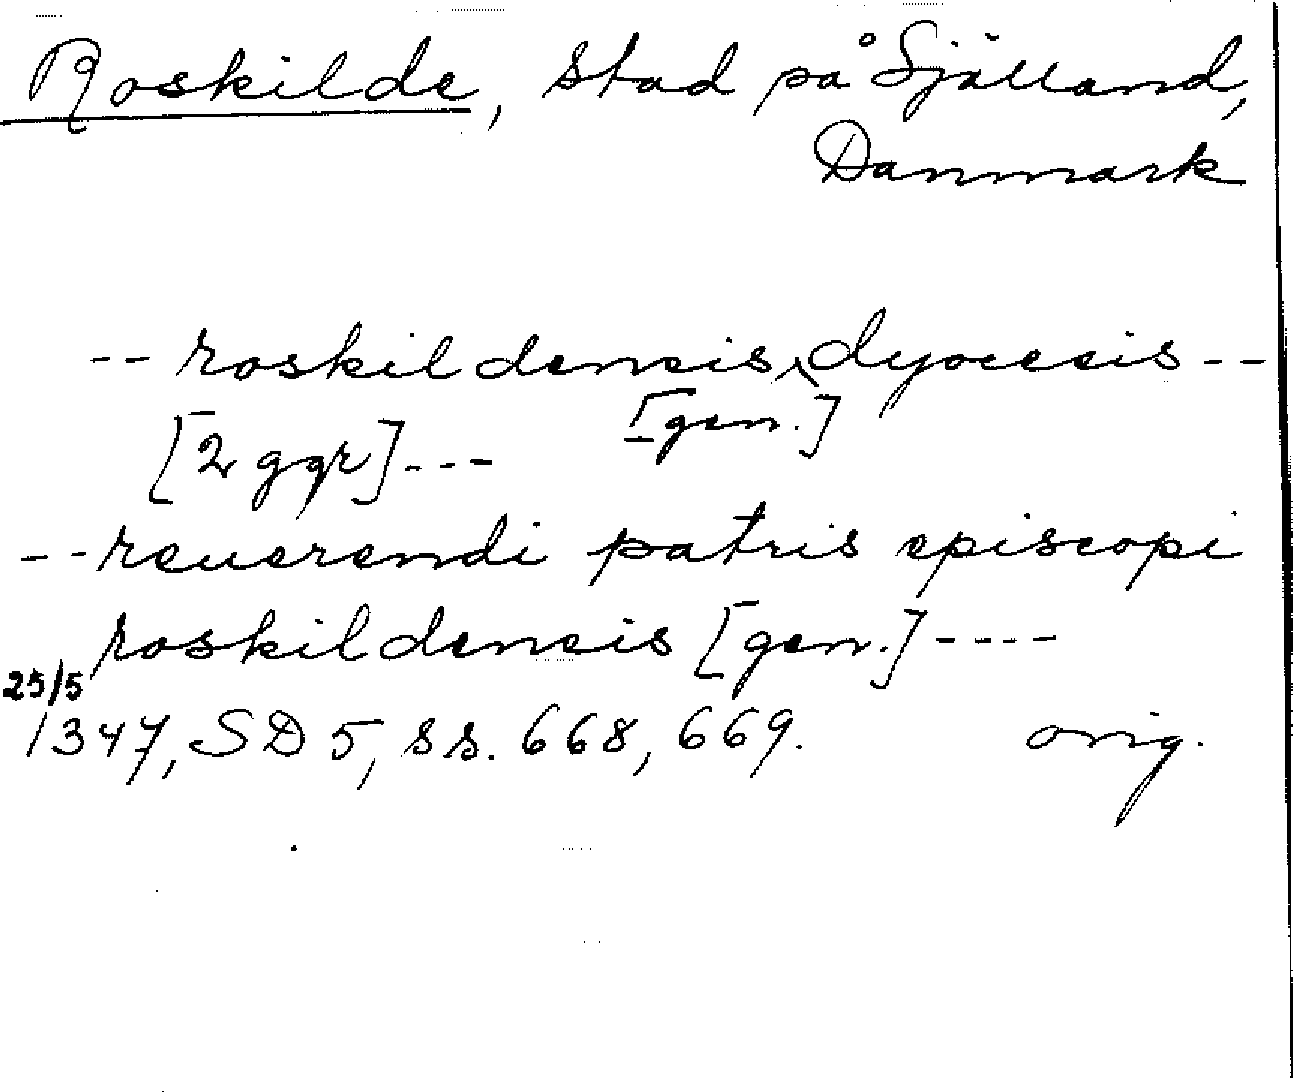 Roskilde, stad på Själland,
Danmark
-- roskildensis, dyocesis --
[gen.]
[2 ggr] ---
-- reuerendi patris episcopi
roskildensis [gen.] ----
25/5
1347, SD 5, ss. 668, 669. orig.